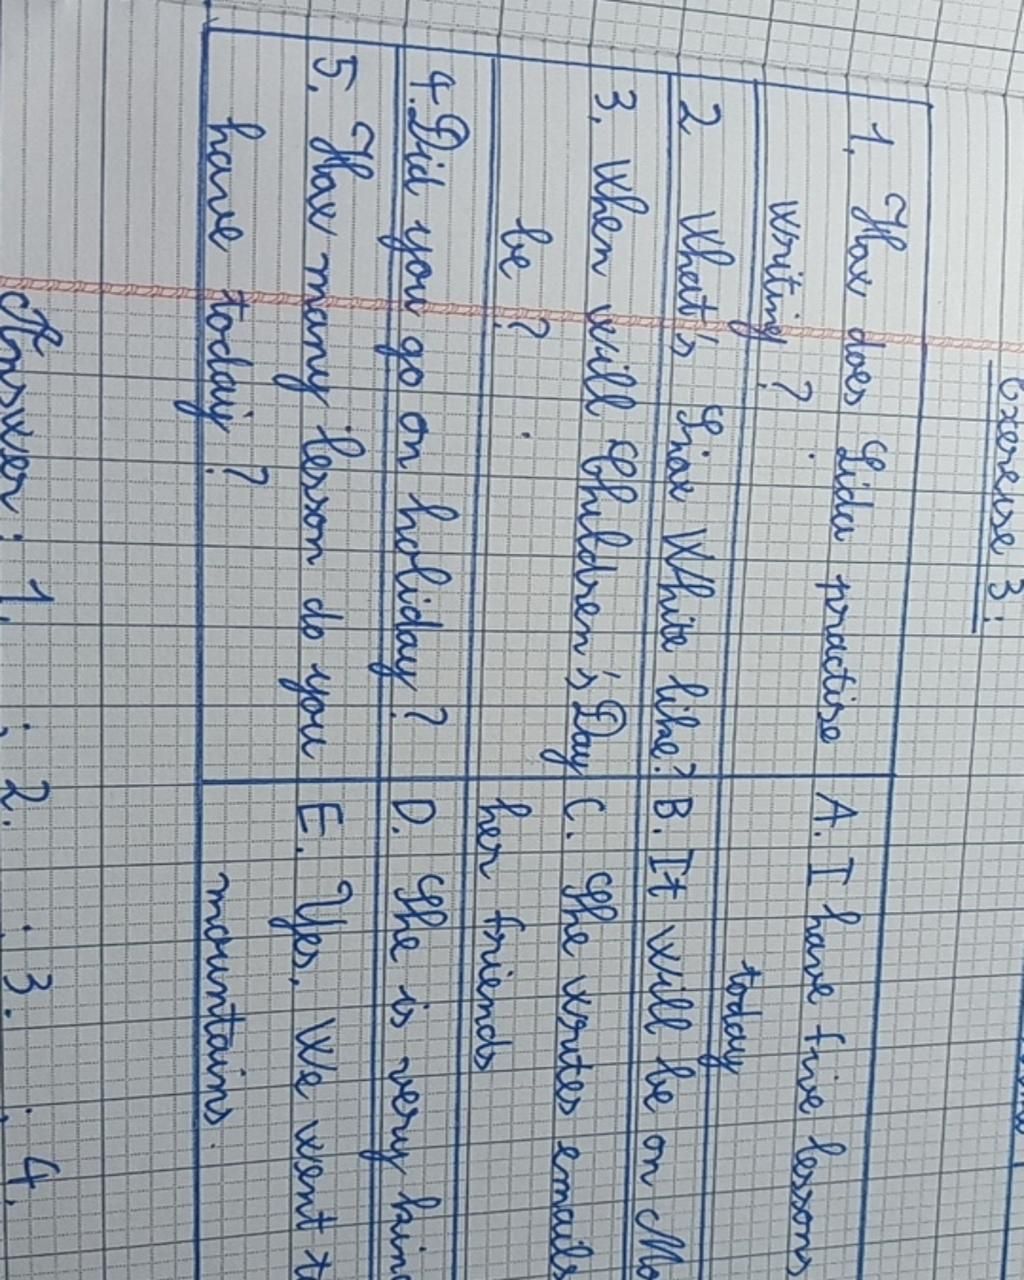 Exercise 3:
1. How does Linda practise
writing?
A. I have five lessons
today
2 What's Snow White like?
B. It will be on
3. When will Children's Day
be?
C. She writes emails
her friends
4. Did you go on holiday?
D. She is very
5. How many lesson do you
have today?
E. Yes. We went
mountains.
Answer: 1. ; 2. ; 3. ; 4.